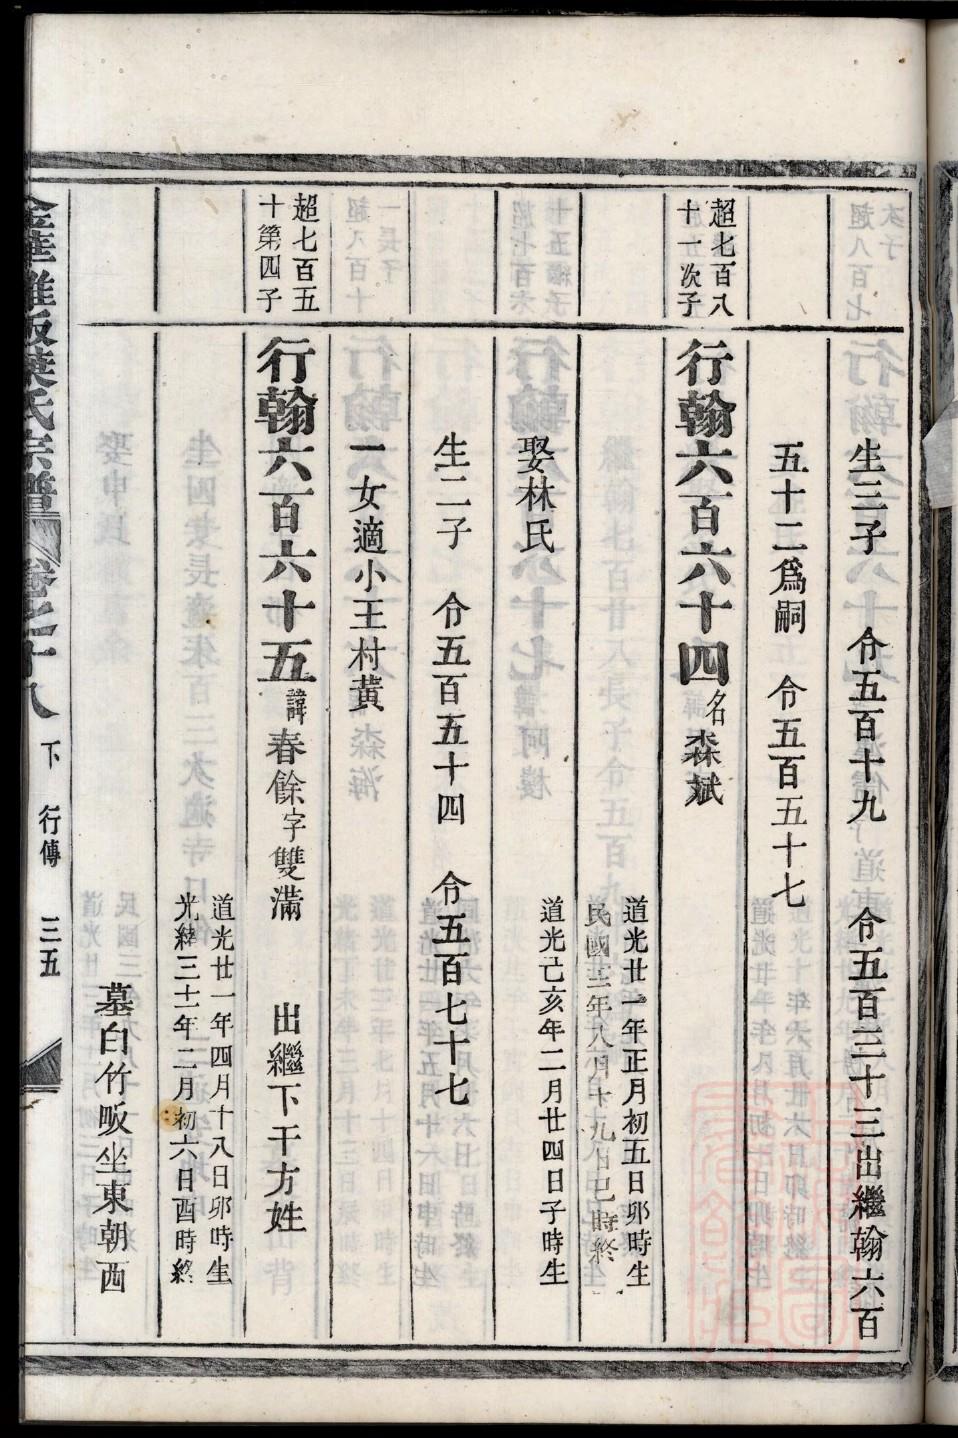 生三子　令五百十九　令五百三十三出繼翰六百
五十二為嗣　令五百五十七
超七百八
十一次子
行翰六百六十四名森斌
道光廿一年正月初五日卯時生
民國三年八月十九日巳時終
娶林氏
道光己亥年二月廿四日子時生
生二子　令五百五十四　令五百七十七
一女適小王村黄
超七百五
十第四子
行翰六百六十五諱春餘字雙滿　出繼下干方姓
道光廿一年四月十八日卯時生
光緒三十一年二月初六日酉時終
墓白竹畈坐東朝西
葉氏宗譜　卷之十八　下　行傳　三五